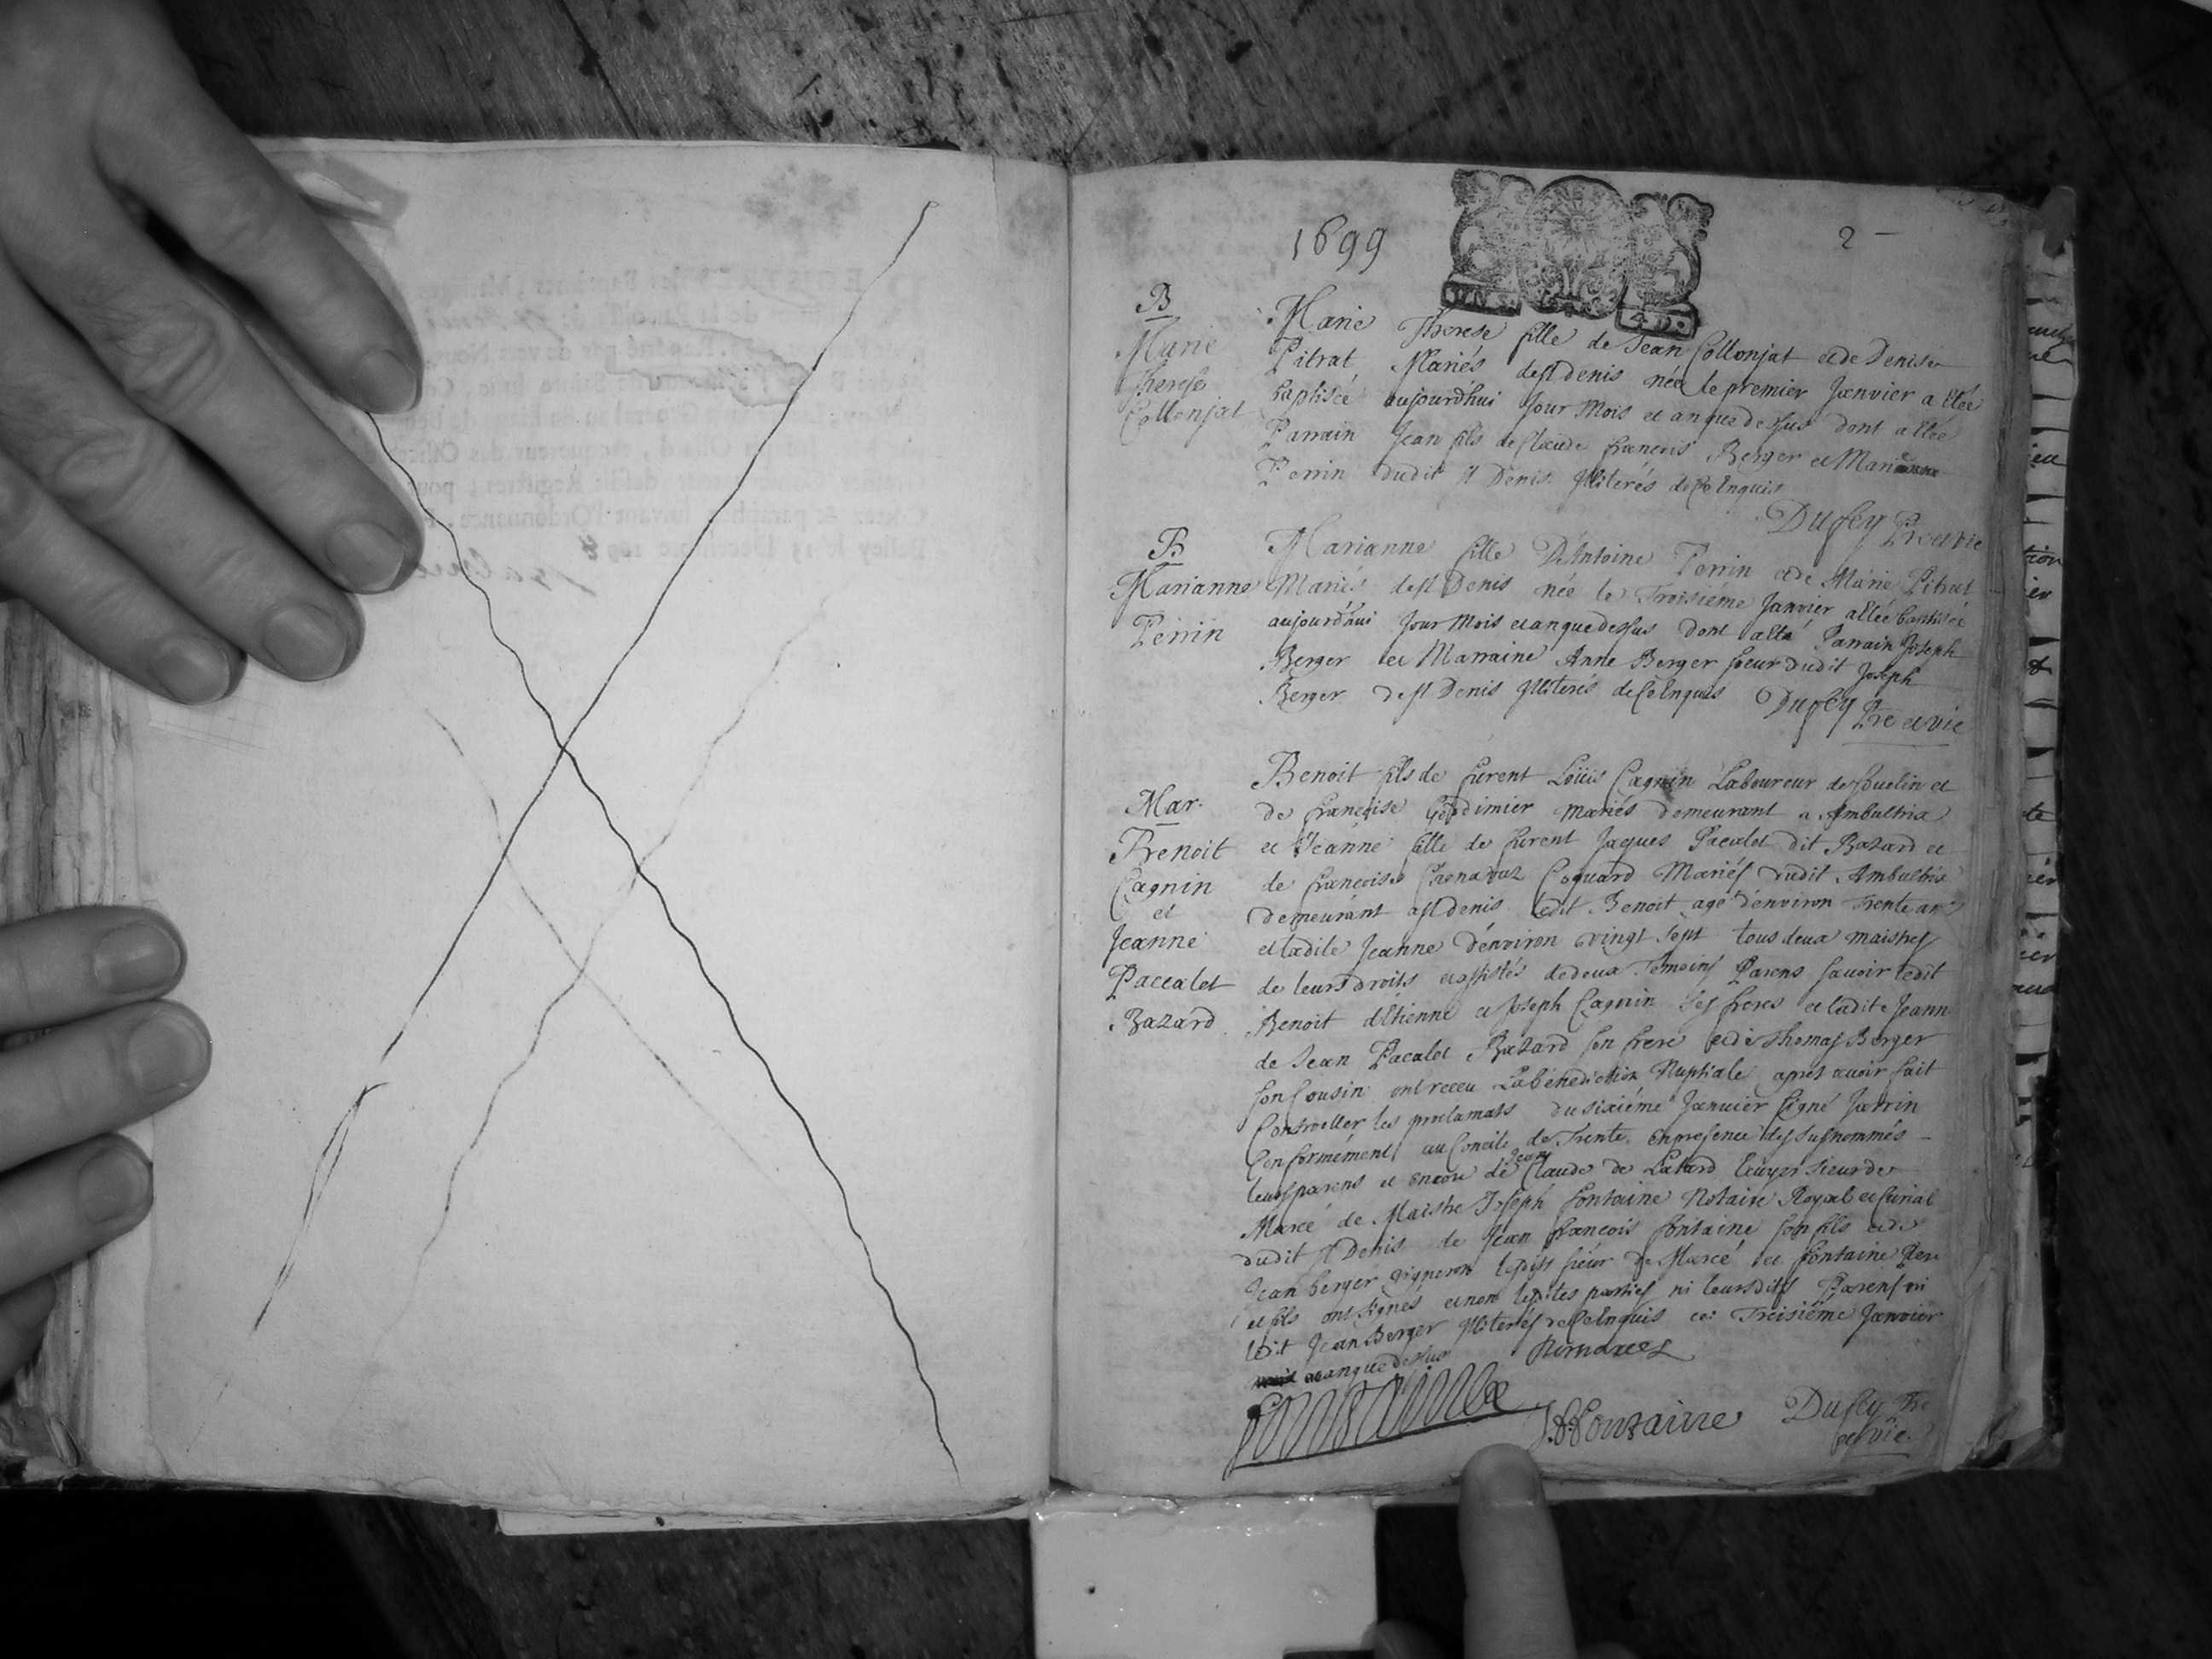 1699
2
4 D.
B
Marie
Therese
Collonjat
Marie Therese fille de Jean Collonjat et de Denise
Pitrat Mariés de st denis née le premier Janvier a etée
baptisée aujourd'huy Jour Mois et an que dessus dont a étée
Parrain Jean fils de Claude francois Berger et Marianne
Perrin dudit st Denis Illiterés de ce Enquis
Dufey Pre et vic
B
Marianne
Perrin
Marianne fille D'Antoine Perrin et de Marie Pitrat
Mariés de st Denis née le Troisieme Janvier a étée baptisée
aujourd'hui Jour Mois et an que dessus dont a eté Parrain Joseph
Berger et Marraine Anne Berger soeur dudit Joseph
Berger de st Denis Illiterés de ce Enquis
Dufey Pre et vic
Mar.
Benoit
Cagnin
et
Jeanne
Paccalet
Bazard
Benoit fils de furent Loüis Cagnin Laboureur de Souclin et
de francoise mariés demeurant a Ambutrix
et Jeanne fille de furent Jaques Pacalet dit Bazard et
de francoise Coquard Mariés dudit Ambutrix
demeurant a st denis ledit Benoit agé d'environ trente ans
et ladite Jeanne d'environ vingt sept tous deux maistres
de leurs droits et assistés de deux Temoins Parens savoir ledit
Benoit d'Etienne et Joseph Cagnin ses freres et ladite Jeann
de Jean Pacalet Bazard son frere et de Thomas Berger
son Cousin ont receu La benediction Nuptiale apres avoir fait
Controller les proclamats du sixiéme Janvier signé Jarrin
Conformément au Concile de Trente en presence des susnommés
leurs parens et encore de Jean Claude de Latard Ecuyer Sieur de
Marcé de Maistre Joseph fontaine Notaire Royal et Curial
dudit st Denis de Jean francois fontaine son fils et de
Jean berger vigneron lesdits sieur de Marcé et fontaine Pere
et fils ont signés et non lesdites parties ni leursdits Parens ni
ledit Jean Berger Illiterés de ce Enquis ce Treisiéme Janvier
et an que dessus
fontaine
J.F. fontaine
Dufey Pre
et vic.